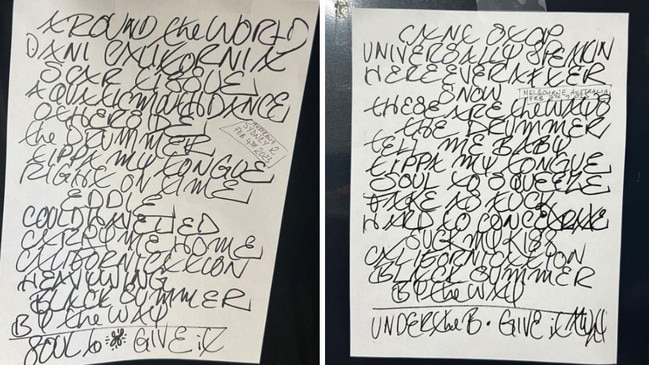 AROUND the WORLD
DANI CALIFORNIA
SCAR TISSUE
AQUATICMOUTHDANCE
OTHERSIDE
the DRUMMER
TIPPA MY TONGUE
RIGHT ON TIME
EDDIE
COULDHAVELIED
CATBOMEHOME
CALIFORNICATION
HEAVYWING
BLACK SUMMER
BY the WAY
SOUL to GIVE it
SYDNEY
FEB 4TH 2023
CANT STOP
UNIVERSALLY SPEAKIN
HERE EVER AFTER
SNOW
MELBOURNE, AUSTRALIA
FEB 2023
THESE ARE the WAYS
the DRUMMER
TELL ME BABY
TIPPA MY TONGUE
SOUL TO SQUEEZE
TAKE AS FUCK
HARD TO CONCENTRATE
SUCK MY KISS
CALIFORNICATION
BLACK SUMMER
BY the WAY
UNDER the B. GIVE it